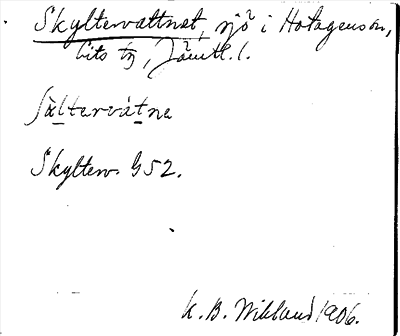 Skyltervattnet, sjö i Hotagens sn,
Lits tg, Jämtl. l.
ʃàltarvátne
Skylterv. G52.
K. B. Wiklund 1906.